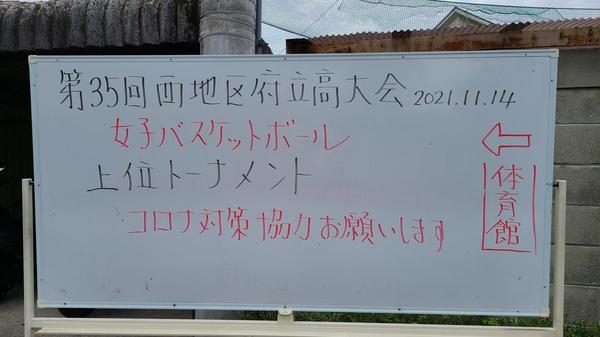 第35回西地区府立高大会 2021.11.14
女子バスケットボール
上位トーナメント
コロナ対策協力お願いします
←
体育館